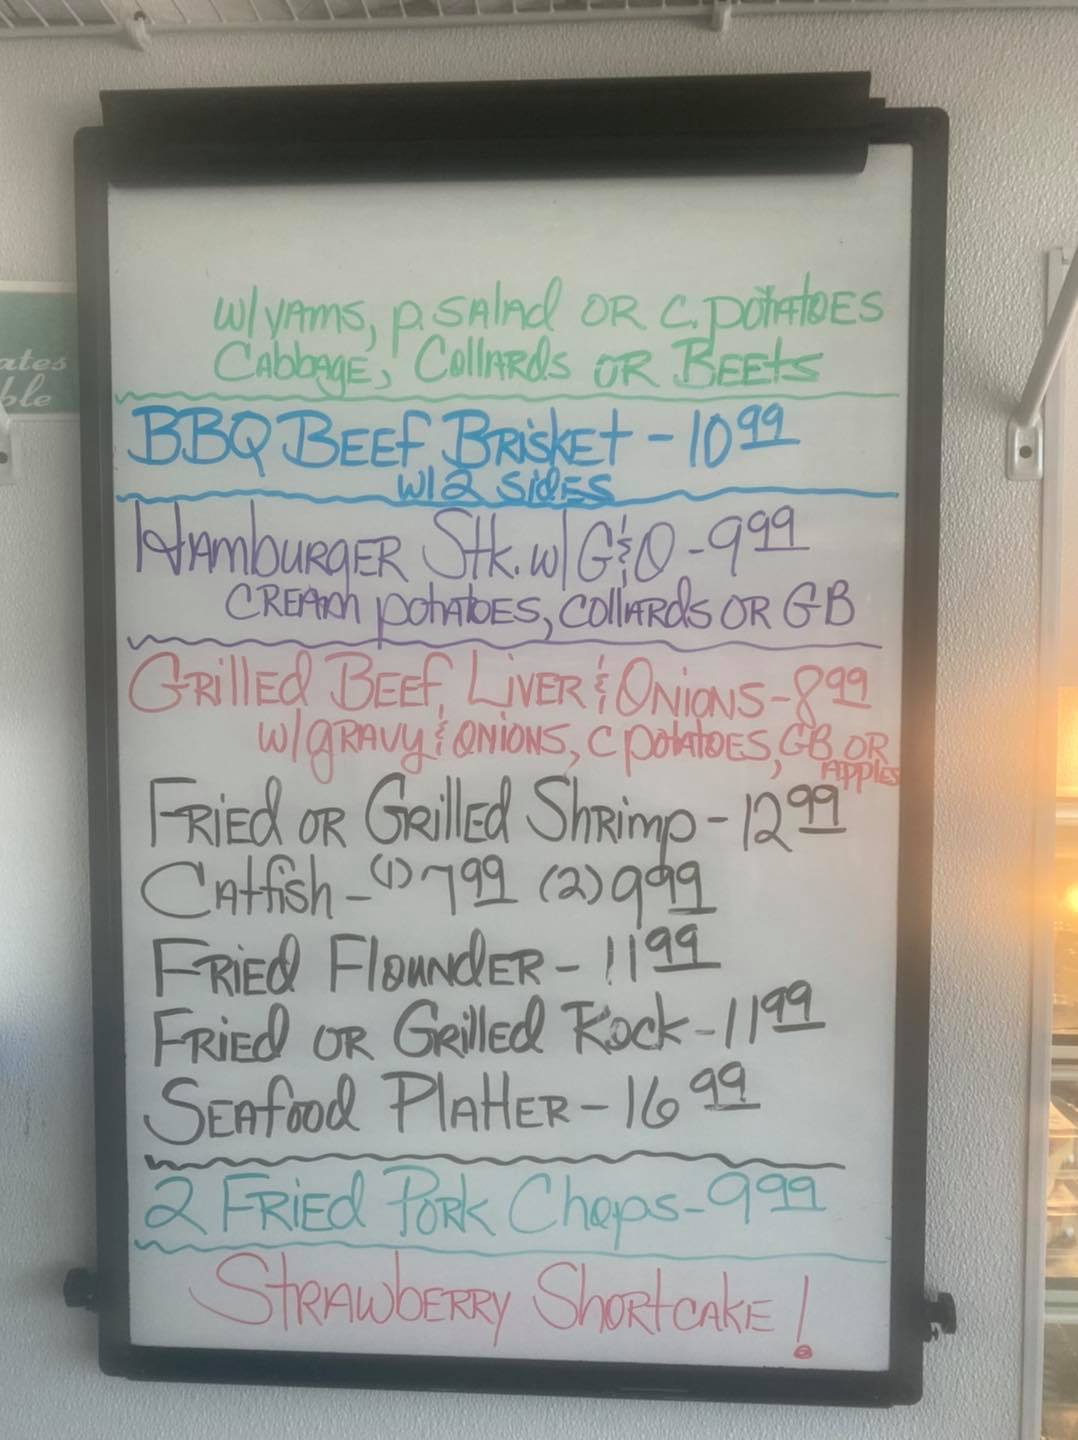 w/yams, p. salad or c. potatoes
Cabbage, Collards or Beets
ates
ble
BBQ Beef Brisket - 10 99
w/ 2 sides
Hamburger Stk. w/ G & O - 9 99
cream potatoes, collards or GB
Grilled Beef Liver & Onions - 8 99
w/ gravy & onions, c potatoes, GB or
apples
Fried or Grilled Shrimp - 12 99
Catfish - (1) 7 99 (2) 9 99
Fried Flounder - 11 99
Fried or Grilled Rock - 11 99
Seafood Platter - 16 99
2 Fried Pork Chops - 9 99
Strawberry Shortcake!